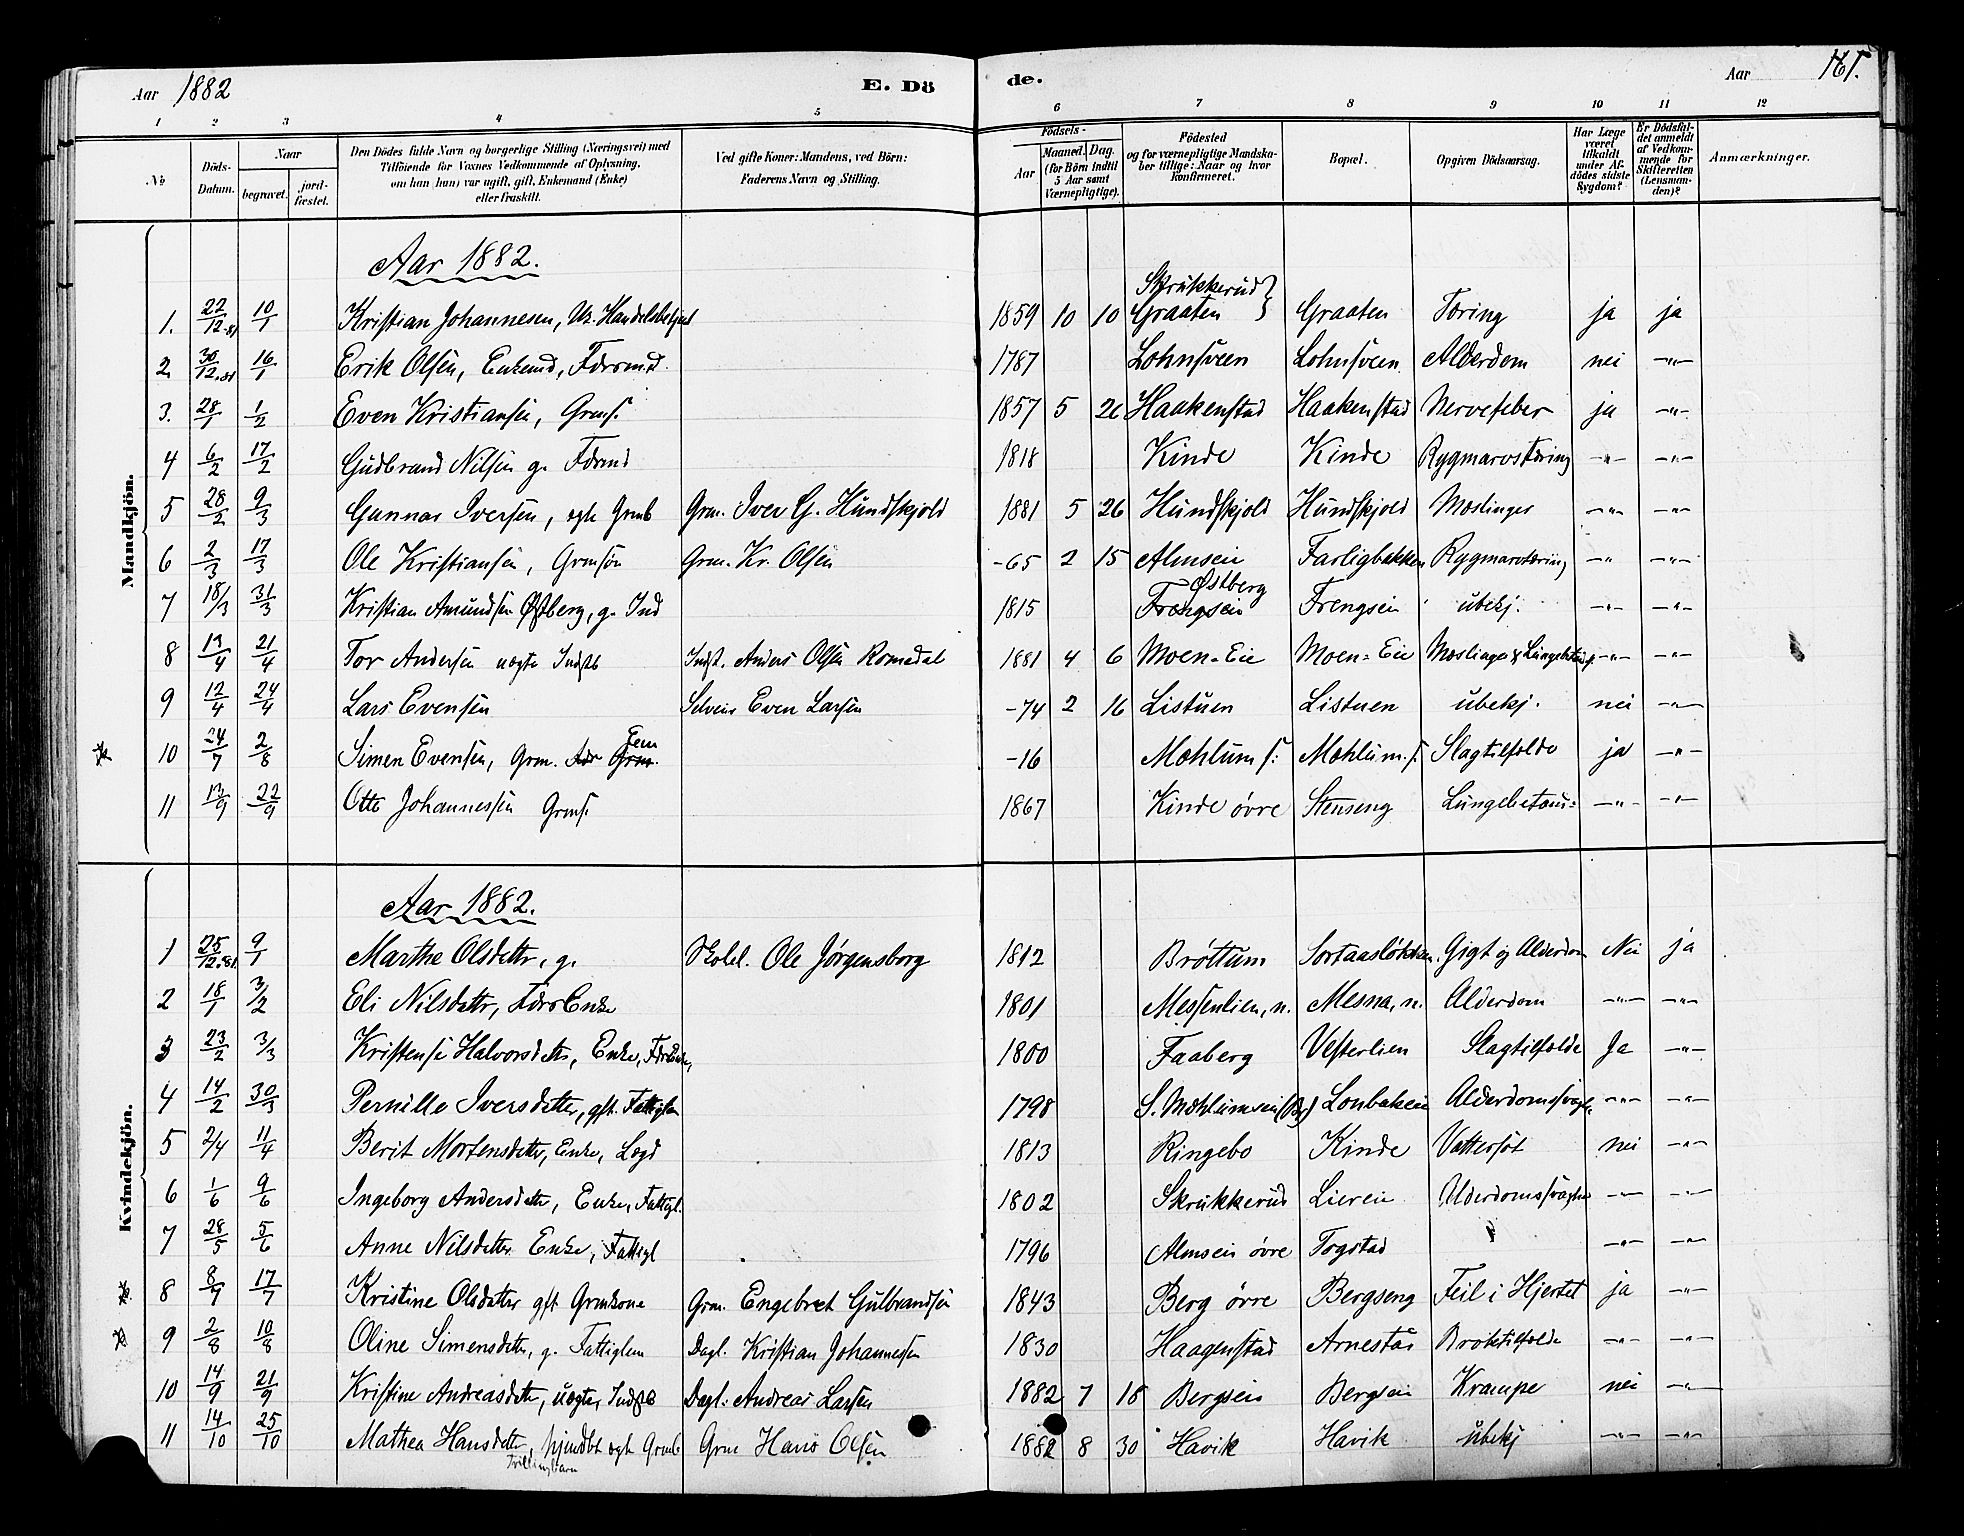 Aar 1882 E. Dö de. Aar 161.
1 2 3 4 5 6 7 8 9 10 11 12
No
Döds-Datum.
Naar
begravet.
jord-fæstet.
Den Dödes fulde Navn og borgerlige Stilling (Næringsvei) med
Tilföiende for Voxnes Vedkommende af Oplysning,
om han (hun) var ugift, gift, Enkemand (Enke)
eller fraskilt.
Ved gifte Koner: Mandens, ved Börn:
Faderens Navn og Stilling.
Födsels-
Aar
Maaned. Dag.
(for Börn indtil
5 Aar samt
Værnepligtige).
Födested
og for værnepligtige Mandska-
ber tillige: Naar og hvor
konfirmeret.
Bopæl.
Opgiven Dödsaarsag.
Har Læge
været
tilkaldt
under Af-
dödes sidste
Sygdom?
Er Dödsfal-
det anmeldt
af Vedkom-
mende for
Skifteretten
(Lensman-
den)?
Anmærkninger.
Mandkjön.
Aar 1882.
1. 22/12.81 10/1 Kristian Johannesen, 1859 10 10 Skrukkerud Graaten Graaten Tæring ja ja
2 30/12.81 16/1 Erik Olsen, Enkemd, Fdrsmd. 1787 Lohnsveen Lohnsveen Alderdom nei -"-
3. 28/1 1/2 Even Kristiansen, Grms. 1857 5 26 Haakenstad Haakenstad Nervefeber ja -"-
4 6/2 17/2 Gudbrand Nilsen g. Fdrmd 1818 Kinde Kinde Rygmarvstæring -"- -"-
5 28/2 9/3 Gunnar Iversen, egte Grmb Grm. Iver G. Hundskjold 1881 5 26 Hundskjold Hundskjold Mæslinger -"- -"-
6 2/3 17/3 Ole Kristiansen, Grmsøn Grm. Kr. Olsen -65 2 15 Almseie Farligbakken Rygmarvtæring -"- -"-
7 18/3 31/3 Kristian Amundsen Østberg, g. Ind 1815 Østberg Frengseie Frengseie ubekj. -"- -"-
8 13/4 21/4 Tor Andersen uegte Indstb Indst. Anders Olsen Romedal 1881 4 6 Moen-Eie Moen-Eie Mæslinger & -"- -"-
9 12/4 24/4 Lars Evensen Selveier Even Larsen -74 2 16 Listuen Listuen ubekj. nei -"-
10 24/7 2/8 Simen Evensen, Grm. Grm. -16 Mæhlum s. Mæhlum. s. Slagtilfælde ja -"-
11 13/9 22/9 Otto Johannessen Grms. 1867 Kinde øvre Stenseng Lungebetæn= -"- -"-
Kvindekjön.
Aar 1882.
1 25/12.81 9/1 Marthe Olsdatter, g. Skolel. Ole Jørgensborg 1812 Brøttum Sortaasløkken Gigt og Alderdom Nei ja
2 18/1 3/2 Eli Nilsdatter, FdrsEnke 1801 Messenlien, n. Mesna, n. Alderdom -"- -"-
3 23/2 3/3 Kristense Halvorsdatter, Enke, 1800 Faaberg Vesterlien Slagtilfælde Ja -"-
4 14/2 30/3 Pernille Iversdatter, gft. Fattiglem 1798 S. Mæhlumseie Lonbakeie -"- -"-
5 2/4 11/4 Berit Mortensdatter, Enke, Lægd 1813 Ringebo Kinde Vattersot nei -"-
6 1/6 9/6 Ingeborg Andersdatter, Enke, Fattigl. 1802 Skrukkerud Liereie -"- -"-
7 28/5 5/6 Anne Nilsdatter Enke, Fattigl 1796 Almseie øvre Togstad -"- -"-
8 8/7 17/7 Kristine Olsdatter gft Grmkone Grm. Engebret Gulbrandsen 1843 Berg øvre Bergseng Feil i Hjertet ja -"-
9 2/8 10/8 Oline Simensdatter, g. Fattiglem Dagl. Kristian Johannessen 1830 Haagenstad Arnestad Broktilfælde -"- -"-
10 14/9 21/9 Kristine Andreasdatter, uegte Indstb Dagl. Andreas Larsen 1882 7 18 Bergseie Bergseie Krampe nei -"-
11 14/10 25/10 Mathea Hansdatter, hjemdbt egte Grmb Grm Hans Olsen 1882 8 30 Havik Havik ubekj -"- -"-
Tvillingbarn